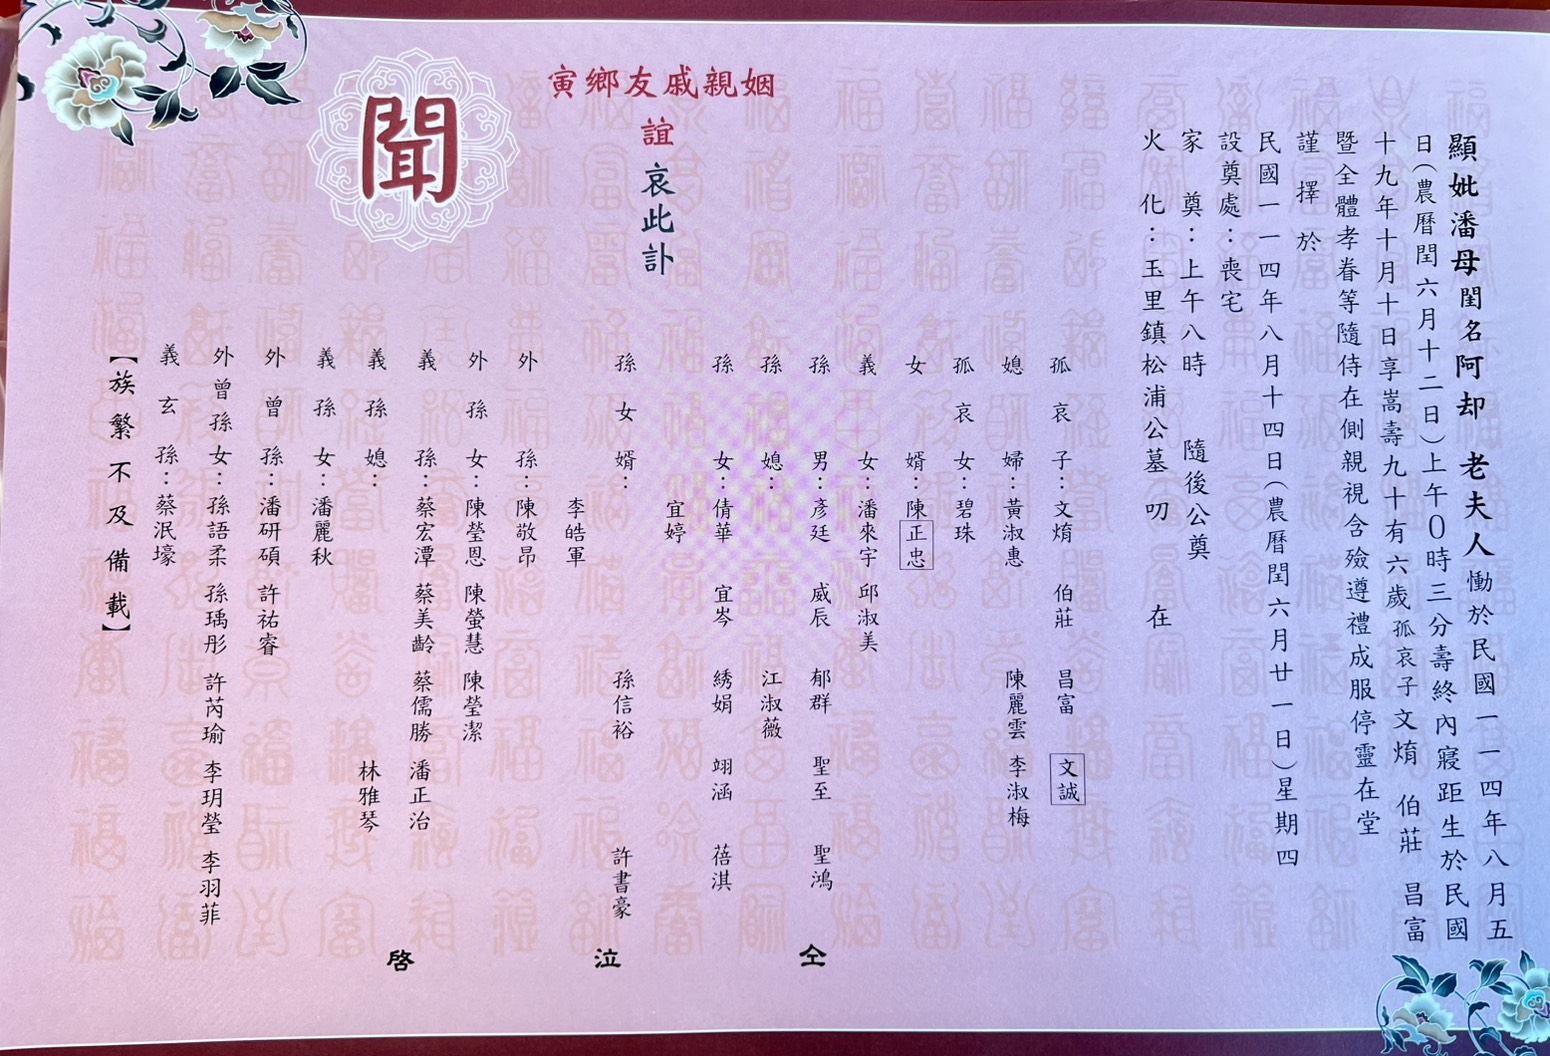 顯妣潘母閨名阿却 老夫人慟於民國一一四年八月五
日(農曆閏六月十二日)上午0時三分壽終內寢距生於民國
十九年十月十日享嵩壽九十有六歲孤哀子文焴 伯莊 昌富
暨全體孝眷等隨侍在側親視含殮遵禮成服停靈在堂
謹擇於
民國一一四年八月十四日(農曆閏六月廿一日)星期四
設奠處:喪宅
家 奠:上午八時 隨後公奠
火 化:玉里鎮松浦公墓 叨 在
姻親戚友鄉寅
誼
哀此訃
聞
孤哀子:文焴 伯莊 昌富 文誠
媳婦:黃淑惠 陳麗雲 李淑梅
孤哀女:碧珠
女婿:陳正忠
義女:潘來宇 邱淑美
孫男:彥廷 威辰 郁群 聖至 聖鴻
孫媳: 江淑薇
孫女:倩華 宜岑 綉娟 翊涵 蓓淇
宜婷
孫女婿: 孫信裕 許書豪
李皓軍
外孫:陳敬昂
外孫女:陳瑩恩 陳螢慧 陳瑩潔
義孫:蔡宏潭 蔡美齡 蔡儒勝 潘正治
義孫媳: 林雅琴
義孫女:潘麗秋
外曾孫:潘研碩 許祐睿
外曾孫女:孫語柔 孫瑀彤 許芮瑜 李玥瑩 李羽菲
義玄孫:蔡泯壕
仝 泣 啓
【族繁不及備載】